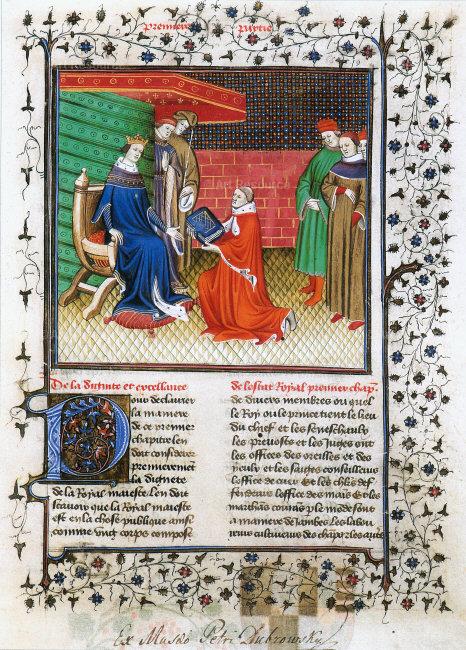 premiere partie
De la dignite et excellance
Pour declairer
la maniere
de ce premier
chapitre len
doit considerer
premierement
la dignete
de la Royal maieste Len doit
scauoir que la Royal maieste
est en la chose publique ainsi
comme vng corps compose
de lestat Royal premier chap.
de diuers membres ou quel
le Roy ou le prince tient le lieu
du chief et les seneschaulx
les preuostz et les Juges ont
les offices des oreilles et des
yeulx et les saiges conseilliers
loffice de cuer Et les chlrs def
fendeurs loffice des mais Et les
marchans courãs p le mõde sont
a maniere de jambes les labou
reurs cultiueurs des champs
Ex Musæo Petri Dubrowsky